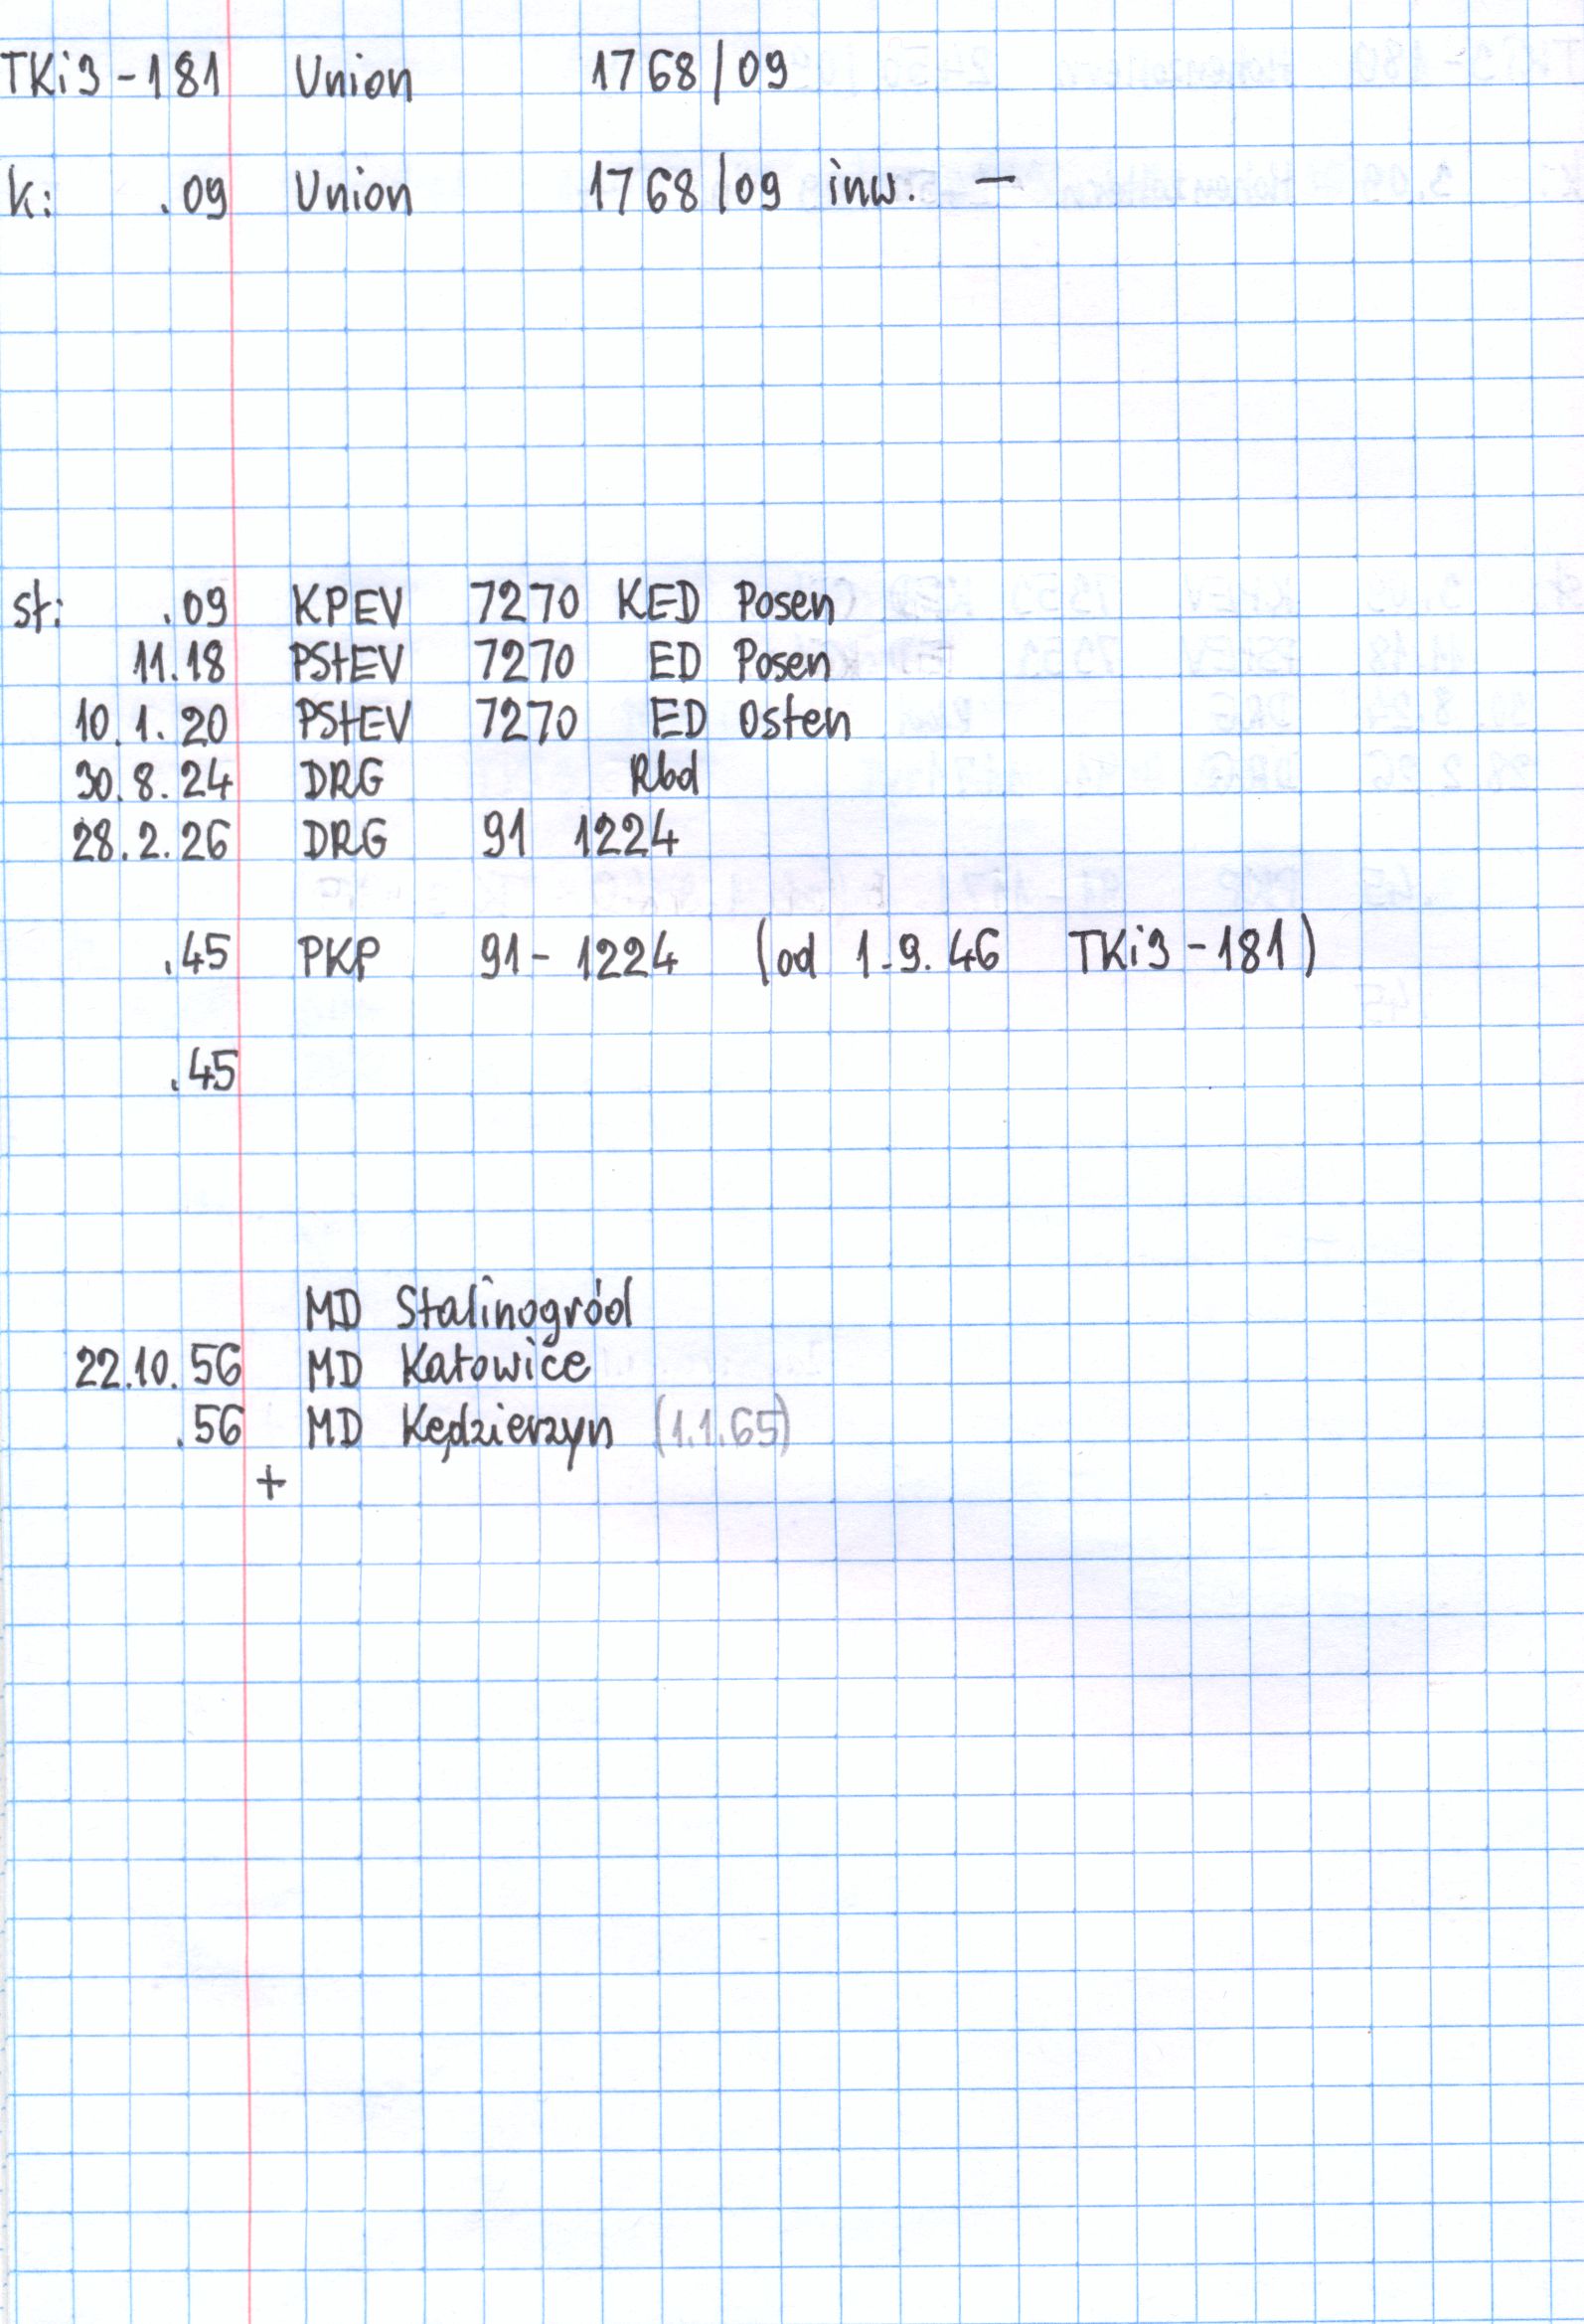 TKi3-181 Union 1768/09
k: .09 Union 1768/09 inw. —
st: .09 KPEV 7270 KED Posen
11.18 PStEV 7270 ED Posen
10.1.20 PStEV 7270 ED Osten
30.8.24 DRG Rbd
28.2.26 DRG 91 1224
.45 PKP 91-1224 (od 1.9.46 TKi3-181)
.45
MD Stalinogród
22.10.56 MD Katowice
.56 MD Kędzierzyn (1.1.65)
+